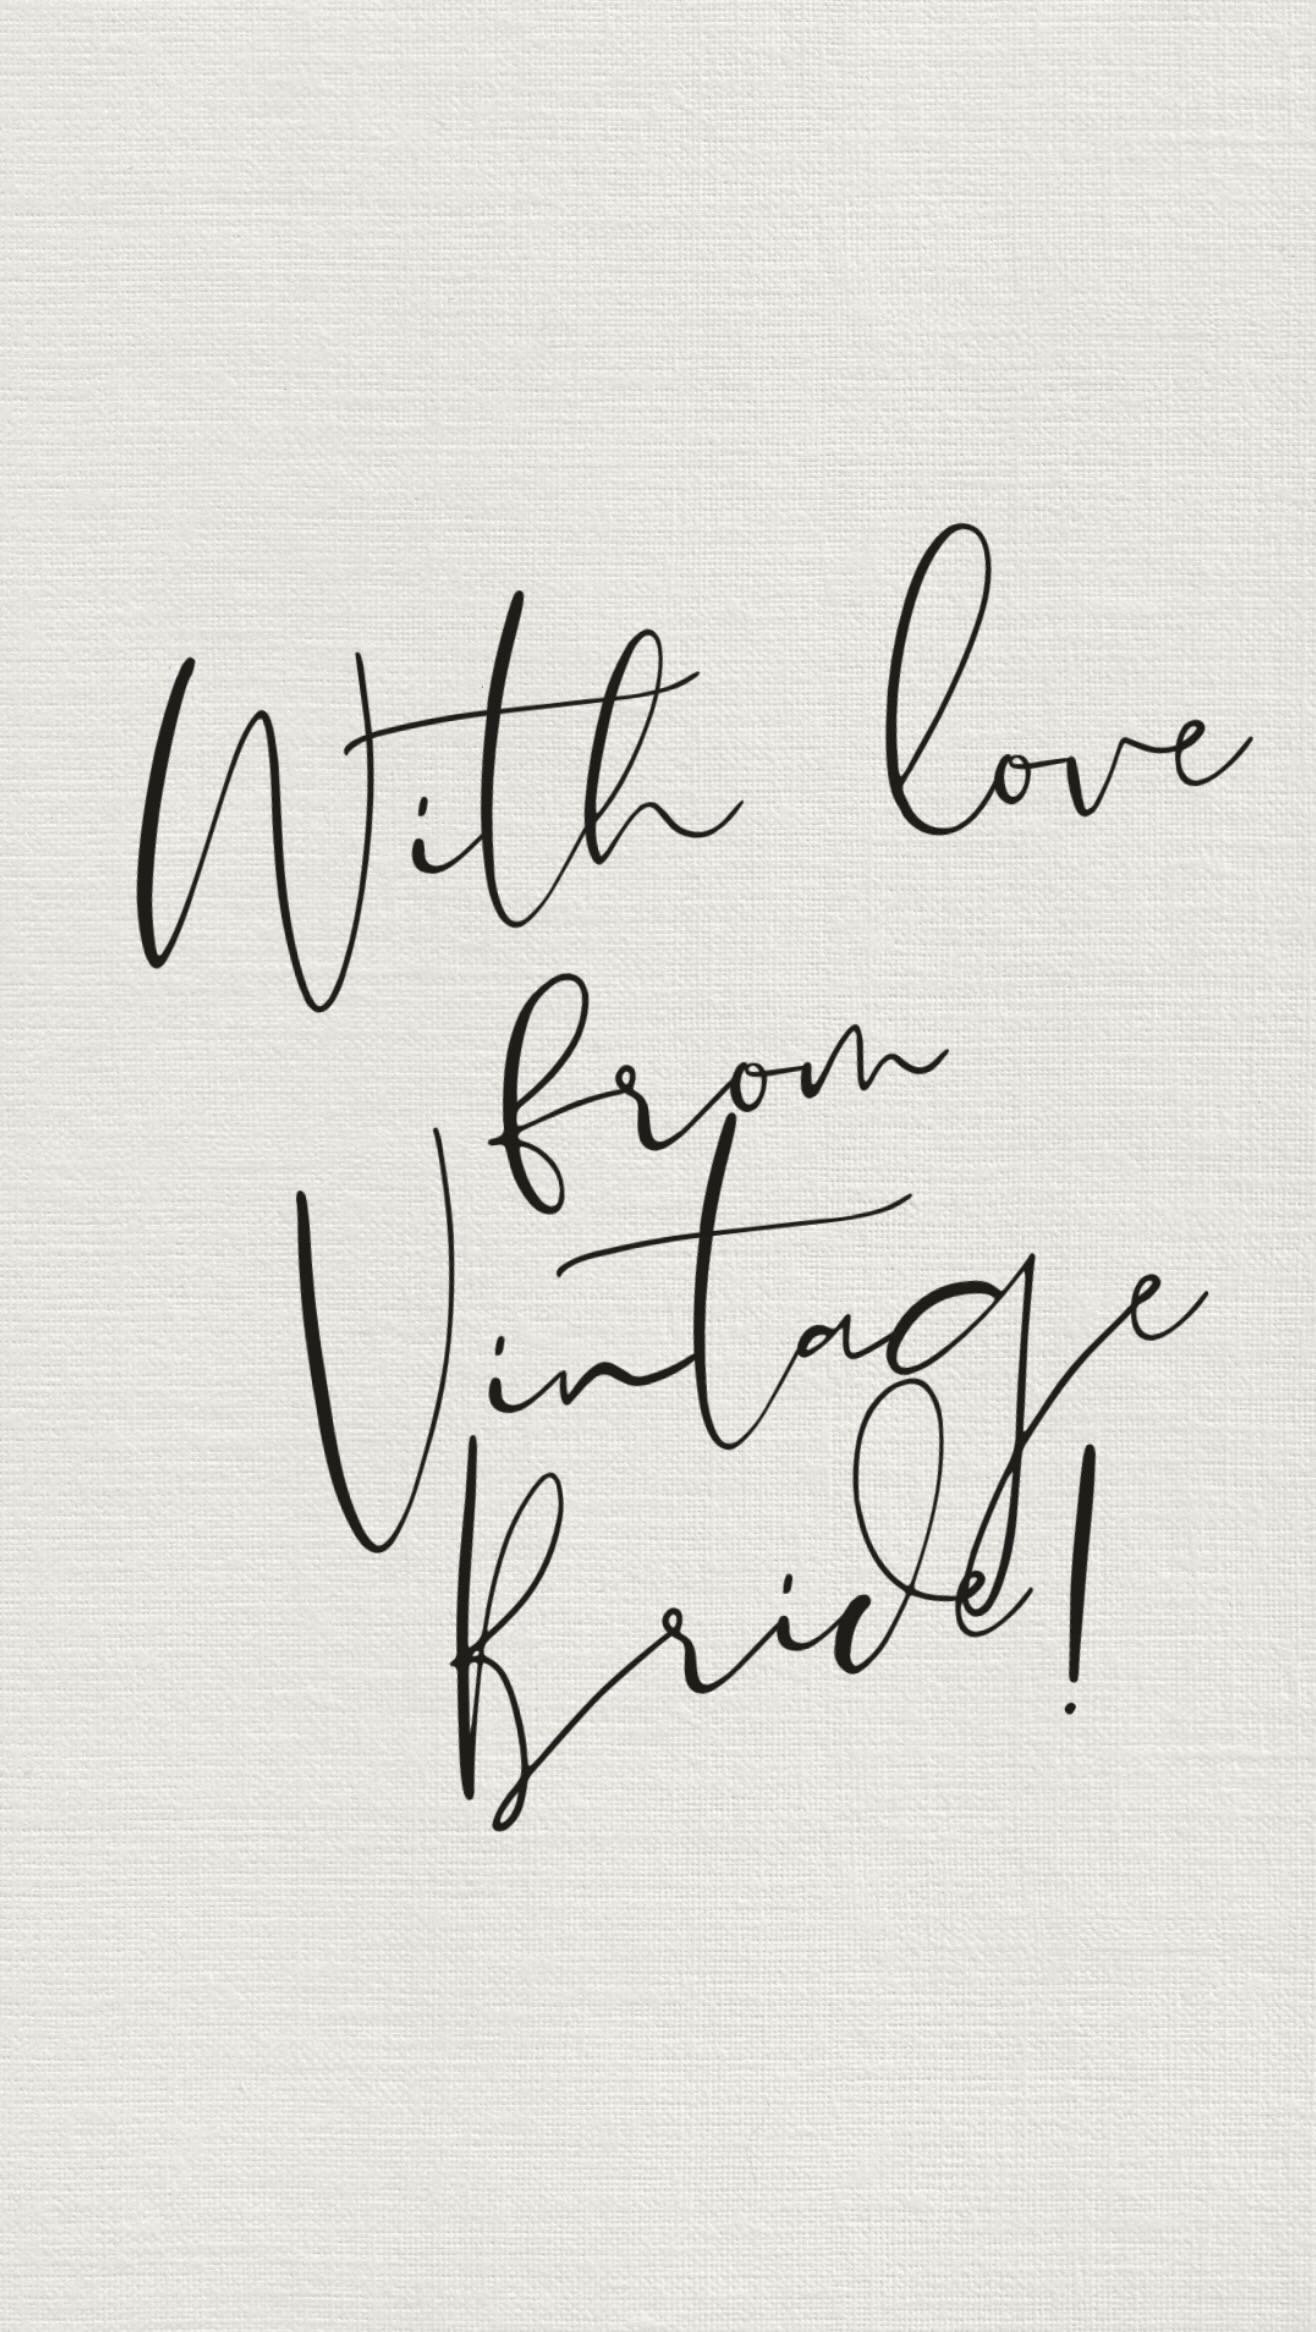 With love
from
Vintage
Bride!